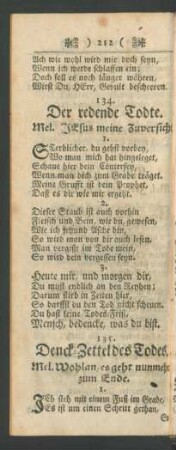 ( 212 )
Ach wie wohl wird mir doch seyn,
Wenn ich werde schlaffen ein;
Doch soll es noch länger währen,
Wirst Du, HErr, Gedult bescheren.
134.
Der redende Todte.
Mel. JEsus meine Zuversicht
1.
STerblicher, du gehst vorbey,
Wo man mich hat hingeleget,
Schaue hier dein Conterfey,
Wenn man dich zum Grabe träget.
Meine Grufft ist dein Prophet,
Daß es dir wie mir ergeht.
2.
Dieser Staub ist auch vorhin
Fleisch und Bein, wie du, gewesen,
Wie ich jetzund Asche bin,
So wird man von dir auch lesen.
Man vergißt im Tode mein,
So wird dein vergessen seyn.
3.
Heute mir, und morgen dir,
Du must endlich an den Reyhen;
Darum stirb in Zeiten hier,
So darffst du den Tod nicht scheuen.
Du hast keine Todes-Frist,
Mensch, bedencke, was du bist.
135.
Denck-Zettel des Todes.
Mel. Wohlan, es geht nunmehr
zum Ende.
1.
ICh steh mit einem Fuß im Grabe,
Es ist um einen Schritt gethan,